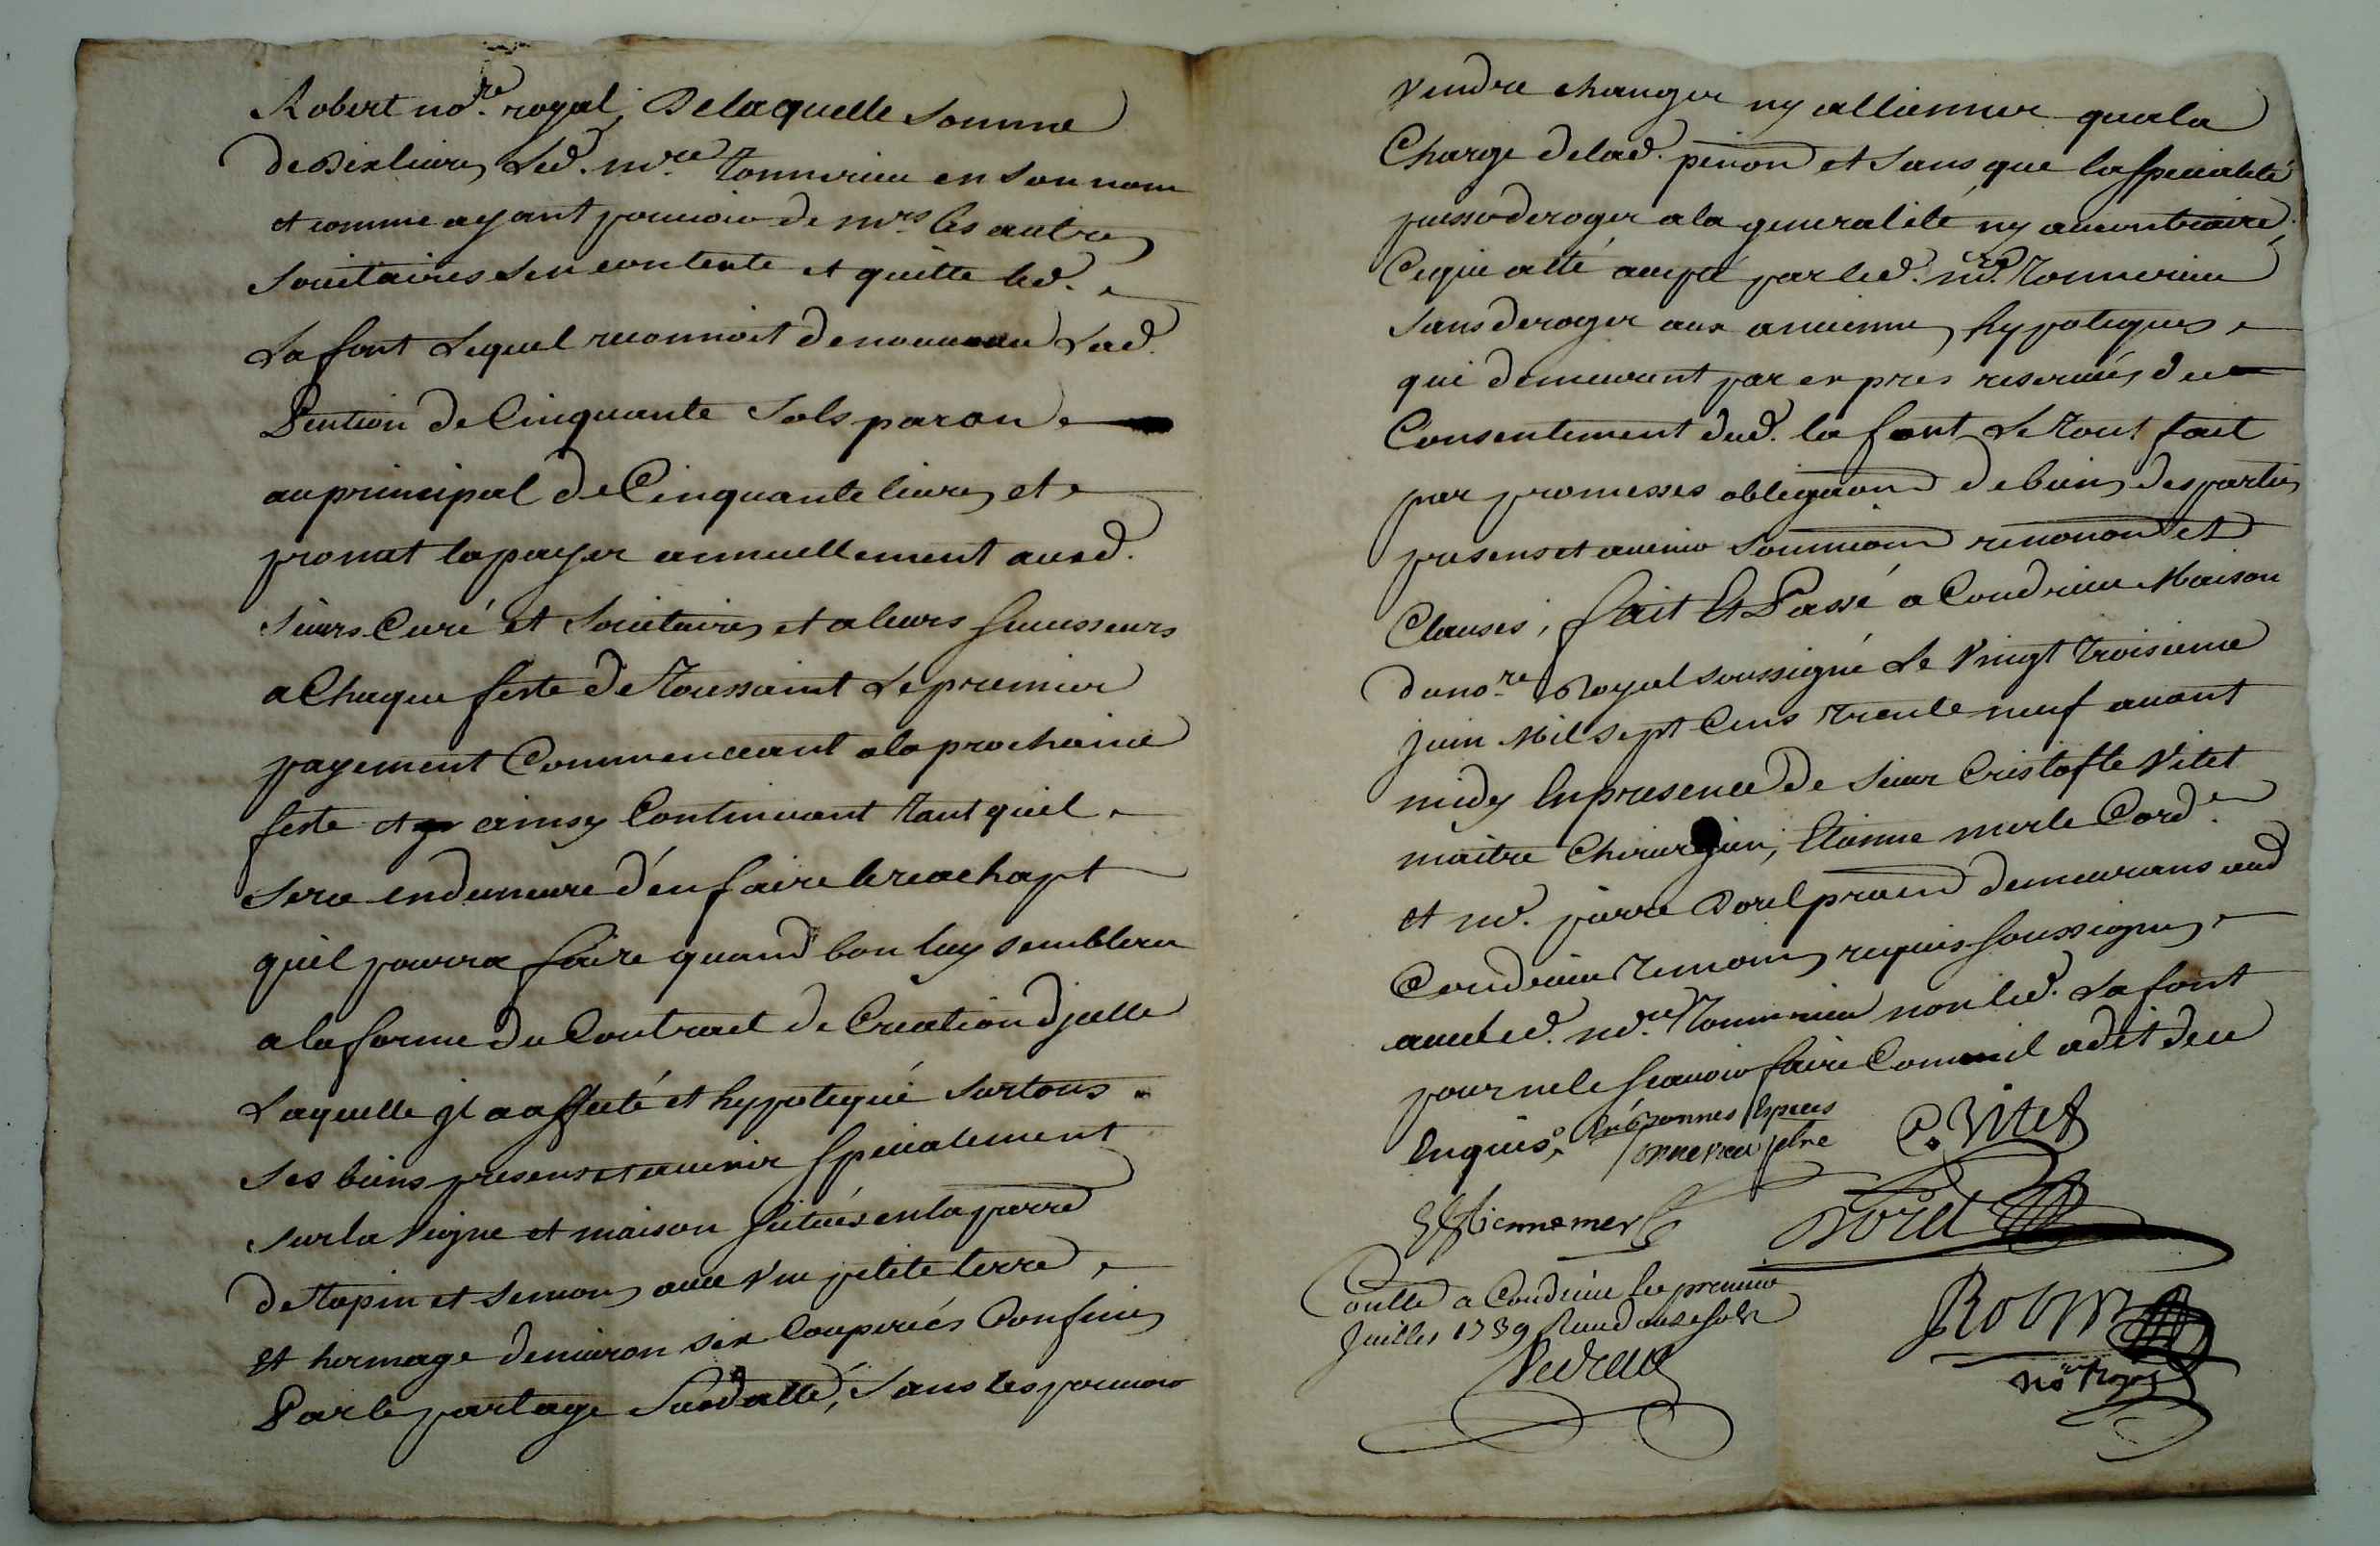 Robert no.re royal, De laquelle Somme
de Dix livres Led. m.re Tonnerieu en son nom
et comme ayant pouvoir de m.rs les autres
Societaires sen contente et quitte led.
Lafont Lequel reconnoit de nouveau Lad.
Pention de Cinquante Sols par an
au principal de Cinquante livres et
promet la payer annuellement ausd.
Sieurs Curé et Societaires et a leurs successeurs
a Chaque feste de Toussaint Le premier
payement Commenceant a la prochaine
feste et ainsy Continuant Tant quil
sera en demeure d'en faire le reachapt
quil pourra faire quand bon luy semblera
a la forme du Contract de Creation djcelle
Laquelle jl a affecté et hypotequé sur tous
ses biens presens et avenir specialement
sur la vigne et maison scituées en la parre
de Tupin et Semons avec vne petite terre
et hermage denviron six Couperées Confinés
Par le partage susdatté, Sans les pouvoir
vendre changer ny allienner qua la
Charge de lad. penon et sans que la specialité
puisse deroger a la generalité ny au contraire,
Ce qui a eté accepté par led. m.re Tonnerieu
sans deroger aux anciennes hypoteques
qui demeurent par exprès reservées du
Consentement dud. la font Le Tout fait
par promesses obligaon de biens des parties
presens et avenir soumissions renonon et
Clauses, fait Et Passé a Condrieu Maison
du no.re Royal soussigné Le vingt troisieme
juin Mil sept Cens Trente neuf avant
midy En presence de sieur Cristofle Vitet
maitre Chirurgien, Etienne merle Cord.
et m.e pierre Dorel pratn demeurans aud
Condrieu Temoins requis soussignes
avec led. m.re Tonnerieu non led. Lafont
pour ne le scavoir faire Comme il a dit de ce
Enquis,
C. Vitet
Estienne merle
Dorel
Conllé a Condrieu le premier
Juillet 1739 Receu douze sols
Robert
no.re royal